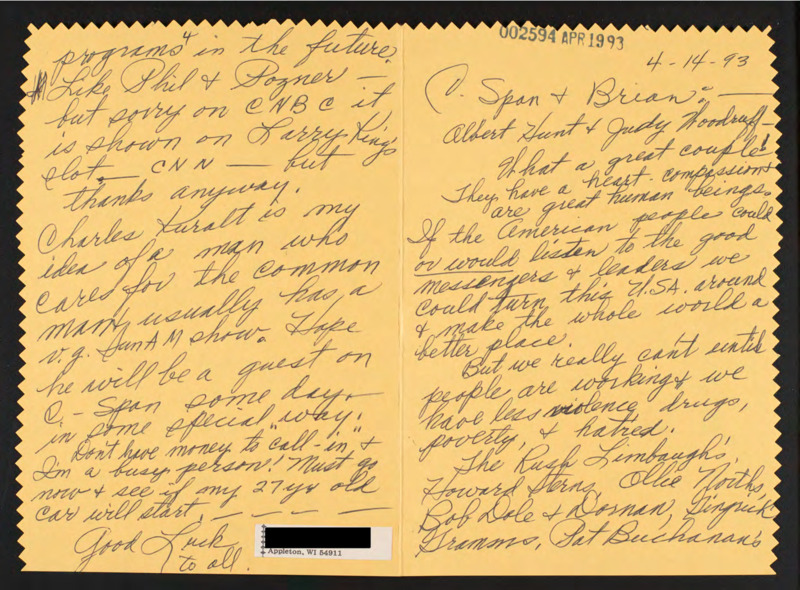 programs" in the future.
Like Phil & Pozner —
but sorry on CNBC it
is shown on Larry King's
slot — CNN — but
thanks anyway.
Charles Kuralt is my
idea of a man who
cares for the common
man, usually has a
v.g. Sun AM show. Hope
he will be a guest on
C-Span some day,
in some special way.
Don't have money to "call-in" &
I'm a busy person! Must go
now & see if my 27 yr old
car will start. — — — —
Good Luck
to all.
Appleton, WI 54911
002594 APR 1993
4-14-93
C-Span & Brian: —
Albert Hunt & Judy Woodruff —
What a great couple!
They have a heart - compassion &
are great human beings.
If the American people could
or would listen to the good
messengers & leaders we
could turn this U.S.A. around
& make the whole world a
better place.
But we really can't until
people are working & we
have less violence, drugs,
poverty, & hatred.
The Rush Limbaugh's,
Howard Sterns, Ollie North's,
Bob Dole & Dornan, Gingrick
Gramms, Pat Buchanan's